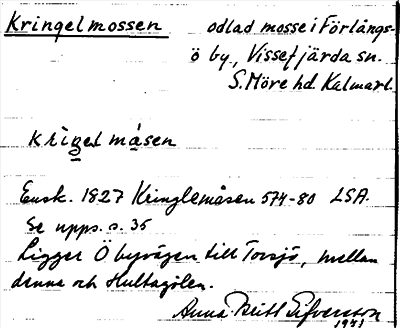 Kringelmossen odlad mosse i Förlångs-
ö by, Vissefjärda sn.
S. Möre hd. Kalmarl.
kriŋel måsen
Ensk. 1827 Kringlemåsen 574-80 LSA.
Se upps. s. 35
Ligger Ö byvägen till Torsjö, mellan
denna och Hultagölen.
Anna Britt Sifversson
1941